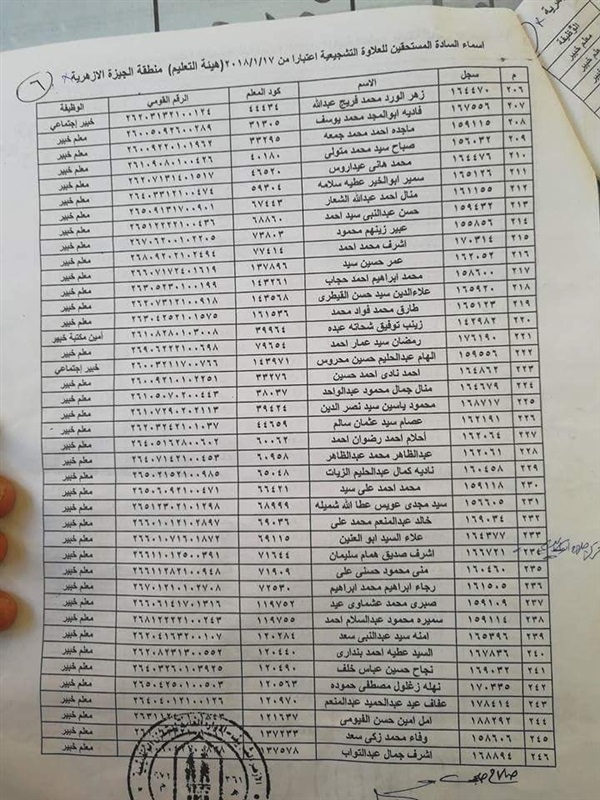 ٦
اسماء السادة المستحقين للعلاوة التشجيعية اعتبارا من ٢٠١٨/١/١٧ (هيئة التعليم) منطقة الجيزة الازهرية
م سجل الاسم كود المعلم الرقم القومي الوظيفة
٢٠٦ ١٦٤٤٧٠ زهر الورد محمد فريج عبدالله ٤٤٤٣٤ ٢٦٢٠٣١٣٢١٠٠١٢٤ خبير إجتماعي
٢٠٧ ١٦٧٥٥٦ فاديه ابوالمجد محمد يوسف ٣١٣٠٥ ٢٦٠٠٥٠٩٢٦٠٠٢٨٩ معلم خبير
٢٠٨ ١٥٩١١٥ ماجده احمد محمد جمعه ٣٣٢٩٥ ٢٦٠٠٩٢٢٠١٠١٩٦٢ معلم خبير
٢٠٩ ١٥٦٠٣٢ صباح سيد محمد متولى ٤٠١٨٠ ٢٦١٠٩٠٨٠١٠٠٤٢٦ معلم خبير
٢١٠ ١٦٤٤٧٦ محمد هانى عيداروس ٤٦٥٢٠ ٢٦٢٠٧١٣١٤٠١٥١٧ معلم خبير
٢١١ ١٦٥١٢٦ سمير ابوالخير عطيه سلامه ٥٩٣٠٤ ٢٦٤٠٣٣١٢١٠٠٤٧٤ معلم خبير
٢١٢ ١٦١١٥٥ منال احمد عبدالله الشعار ٦٧٤٤٣ ٢٦٥٠٩١٣١٧٠٠٩٠١ معلم خبير
٢١٣ ١٥٩٤٣٢ حسن عبدالنبى سيد احمد ٦٨٨٦٠ ٢٦٥١٢٢٢١١٠٠٤٣٦ معلم خبير
٢١٤ ١٥٥٨٥٦ عبير زينهم محمود ٧٣٨٠٣ ٢٦٧٠٦٢٠٠١٠٢٢٠٥ معلم خبير
٢١٥ ١٧٠٣١٤ اشرف محمد احمد ٧٧٤١٤ ٢٦٨٠٩٢٠٢١٠٢٤٩٤ معلم خبير
٢١٦ ١٦٢٠٥٢ عمر حسين سيد ١٣٧٨٩٦ ٢٦٦٠٧١٧٢٤٠١٦١٩ معلم خبير
٢١٧ ١٥٨٦٠٠ محمد ابراهيم احمد حجاب ١٤٣٢٦١ ٢٦٣٠٥٢٣٠١٠٠١٩٩ معلم خبير
٢١٨ ١٦٥٩٢٠ علاءالدين سيد حسن القيطرى ١٤٣٥٦٨ ٢٦٢٠٧٣١٢١٠٠٩١٨ معلم خبير
٢١٩ ١٦٥١٢٣ طارق محمد فواد محمد ١٦١٥٣٦ ٢٦٣٠٤٢٥٢١٠١٥٧٥ معلم خبير
٢٢٠ ١٤٢٩٨٢ زينب توفيق شحاته عبده ٣٩٩٦٤ ٢٦١٠٨٢٨٠١٠٣٠٠٨ أمين مكتبة خبير
٢٢١ ١٧٦١٩٠ رمضان سيد عمار احمد ٧٩٦٥٤ ٢٦٩٠٦٢٢٢١٠٠٦٩٨ معلم خبير
٢٢٢ ١٥٩٥٥٦ الهام عبدالحليم حسين محروس ١٤٣٩٧١ ٢٦٠٠٣٢١١٧٠٠٧٦٦ خبير إجتماعي
٢٢٣ ١٦٤٨٦٢ احمد نادى احمد حسين ٣٣٢٧٦ ٢٦٠٠٩٢١٠١٠٢٢٥١ معلم خبير
٢٢٤ ١٦٤٦٧٩ منال جمال محمود عبدالواحد ٣٨٠٣٧ ٢٦٢٠٥٠٢٠١٠٠٤٤٣ معلم خبير
٢٢٥ ١٦٨٧١٧ محمود ياسين سيد نصر الدين ٣٩٤٢٤ ٢٦١٠٧٢٩٠٢٠٢١١٣ معلم خبير
٢٢٦ ١٦٢١٩١ عصام سيد عثمان سالم ٤٤٦٥٩ ٢٦٠٠٧٢١٢١٠٠٤٥٨ معلم خبير
٢٢٧ ١٦٢٠٦٤ أحلام احمد رضوان احمد ٦٠٠٦٢ ٢٦٤٠٥١٦٢٨٠٠٦٠٢ معلم خبير
٢٢٨ ١٦٢٠٦١ عبدالظاهر محمد عبدالظاهر ٦٠٩٥٨ ٢٦٤٠٧١٤٢١٠٠٤٥٣ معلم خبير
٢٢٩ ١٦٠٤٥٨ ناديه كمال عبدالحليم الزيات ٦٥٠٤٨ ٢٦٥٠٢١٥٢١٠٠٩٨٥ معلم خبير
٢٣٠ ١٥٩١١٨ محمد احمد على سيد ٦٦٤٢١ ٢٦٥٠٦٠٩٢١٠٠٤٧١ معلم خبير
٢٣١ ١٥٦٦٠٥ سيد مجدى عويس عطا الله شميله ٦٨٩٩٩ ٢٦٥١٢٣٠٢١٠١٢٩٨ معلم خبير
٢٣٢ ١٦٩٠٣٤ خالد عبدالمنعم محمد على ٦٩٠٣٦ ٢٦٦٠١٠١٢١٠٢٨٩٧ معلم خبير
٢٣٣ ١٦٤٣٧٧ علاء السيد ابو العنين ٦٩١١٥ ٢٦٦٠١٠٧١٦٠١٨٧٢ معلم خبير
٢٣٤ ١٦٦٧٢١ اشرف صديق همام سليمان ٧١٦٤٤ ٢٦٦١١٠١٢٥٠٠٣٩١ معلم خبير
٢٣٥ ١٦٠٤٦٠ منى محمود حسنى على ٧١٩٠٩ ٢٦٦١١٢٨٢١٠٠٩٤٨ معلم خبير
٢٣٦ ١٦١٥٠٥ رجاء ابراهيم محمد ابراهيم ٧٢٥٣٠ ٢٦٧٠١٢١٠١٠٢٧٠٨ معلم خبير
٢٣٧ ١٥٩١٠٩ صبرى محمد عشماوى عيد ١١٩٧٥٢ ٢٦٦٠٦١٤١٧٠١٣١٦ معلم خبير
٢٣٨ ١٥٩١١٠ سميره محمود عبدالسلام احمد ١١٩٧٥٥ ٢٦٨١٢٢٢٢١٠٠٢٤٣ معلم خبير
٢٣٩ ١٦٥٣٩٦ امنه سيد عبدالنبى سعد ١٢٠٢٨٤ ٢٦٢٠٤١٦٣٢٠٠١٠٧ معلم خبير
٢٤٠ ١٦٧٨٣٦ السيد عطيه احمد بندارى ١٢٠٤٤٠ ٢٦٢٠٨٢٣١٣٠٠٥٥٢ معلم خبير
٢٤١ ١٦٩٠٣٢ نجاح حسين عباس خلف ١٢٠٤٩٠ ٢٦٤٠٣٢٦٠١٠٣٩٢٥ معلم خبير
٢٤٢ ١٧٠٣٣٥ نهله زغلول مصطفى حموده معلم خبير
٢٤٣ ١٧٨٤١٤ عفاف عيد عبدالحميد عبدالمنعم ١٢٠٩٧٠ معلم خبير
٢٤٤ ١٨٨٢٩٢ امل امين حسن الفيومى ١٢١٦٣٧ معلم خبير
٢٤٥ ١٥٨٦٠٦ وفاء محمد زكى سعد ١٣٧٢٣٣ معلم خبير
٢٤٦ ١٦٨٨٩٤ اشرف جمال عبدالتواب ١٣٧٥٧٨ معلم خبير